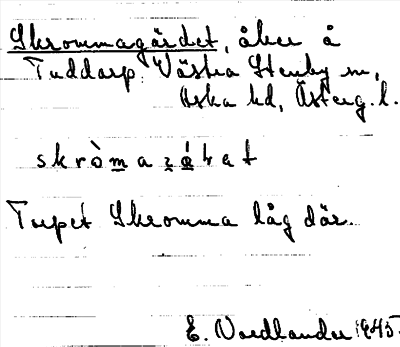 Skrommagärdet, åker å
Tuddarp Västra Stenby sn,
Aska hd, Österg. l.
skròma
Torpet Skromma låg där.
E. Nordlander 1945.